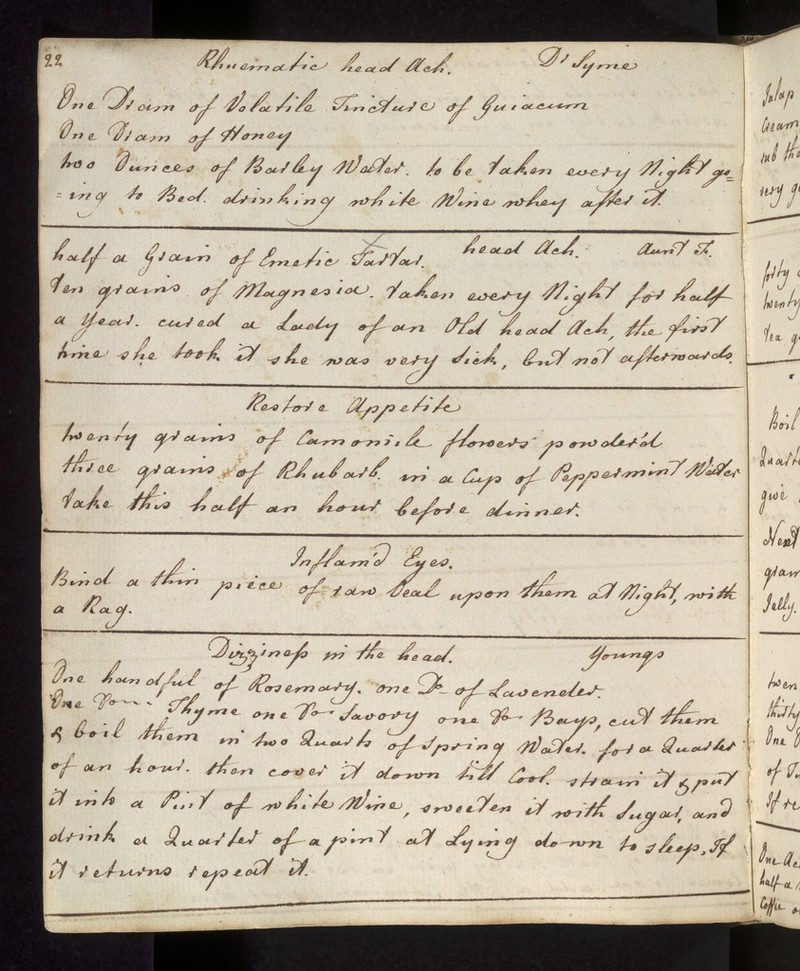 22
Rhuematic head Ach. Dr Syme
One Dram of Volatile Tincture of Guiacum
One Dram of Honey
two Ounces of Barley Water. to be taken every Night go=
=ing to Bed. drinking white Wine whey after it.
head Ach. Aunt F.
half a Grain of Emetic Tartar.
ten grains of Magnesia. taken every Night for half
a Year. cured a Lady of an Old head Ach, the first
time she took it she was very Sick, but not afterwards.
Restore Appetite
twenty grains of Camomile flowers powder'd
three grains of Rhubarb. in a Cup of Peppermint Water
take this half an hour before dinner.
Inflam'd Eyes.
Bind a thin piece of raw Veal upon them at Night, with
a Rag.
Dizziness in the head. Youngs
One handful of Rosemary. one Do of Lavender.
One Do Thyme one Do Savory one Do Bays, cut them
& boil them in two Quarts of Spring Water. for a Quarter
of an hour. then cover it down till Cool. strain it & put
it into a Pint of white Wine, sweeten it with Sugar, and
drink a Quarter of a pint at Lying down to sleep, If
it returns repeat it.
Jalap
Cream
rub the
very
forty
twenty
Tea
Boil
Quart
give
Next
grain
Jelly.
twen
thirty
One
of
If re
One
half a
Coffee